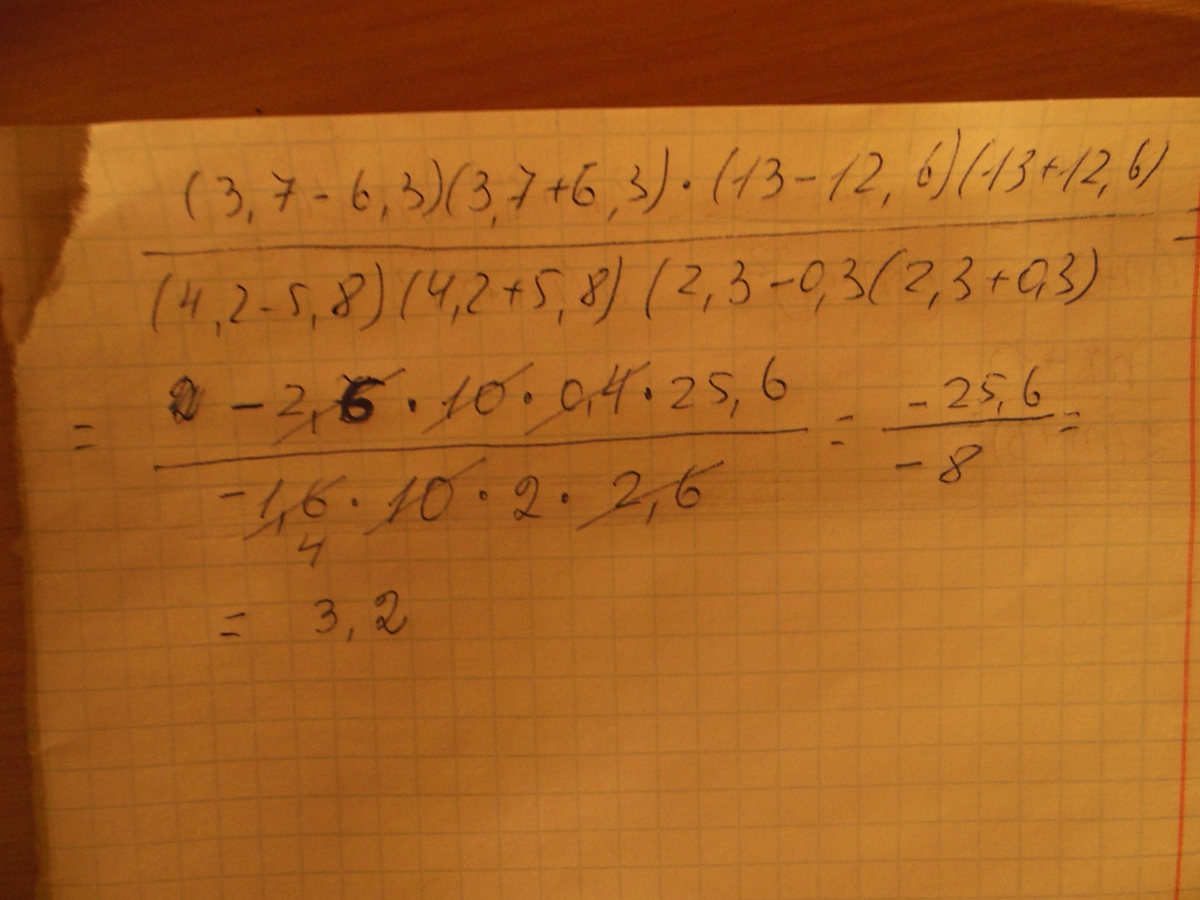 (3,7-6,3)(3,7+6,3)·(13-12,6)(13+12,6) =
(4,2-5,8)(4,2+5,8)(2,3-0,3(2,3+0,3)
= -2,6·10·0,4·25,6 = -25,6 =
-1,6·10·2·2,6 -8
4
= 3,2